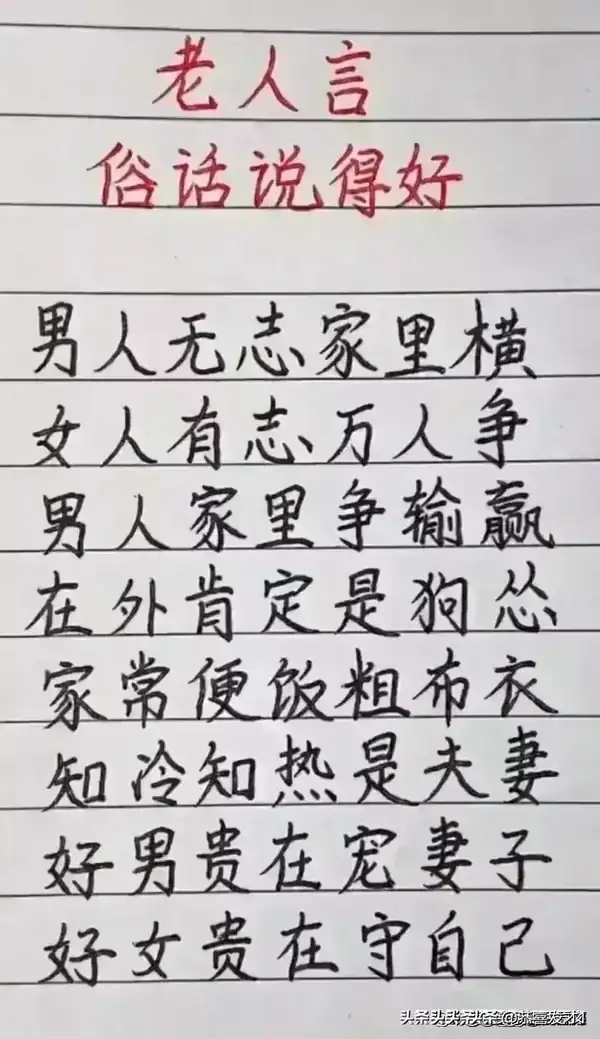 老人言
俗话说得好
男人无志家里横
女人有志万人争
男人家里争输赢
在外肯定是狗怂
家常便饭粗布衣
知冷知热是夫妻
好男贵在宠妻子
好女贵在守自己
头条